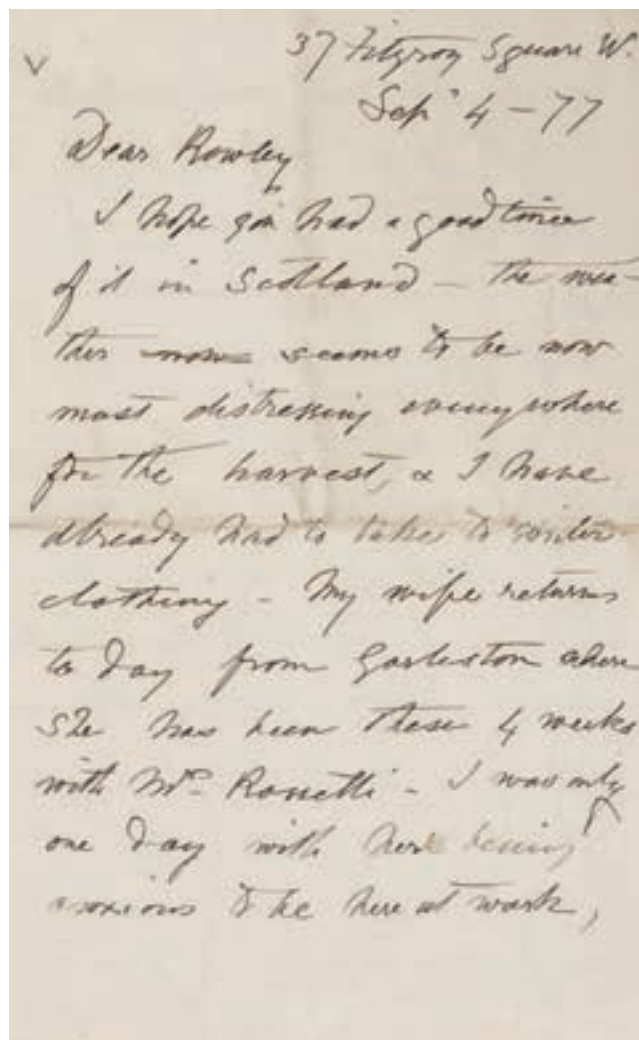 37 Fitzroy Square W.
Sepr 4 - 77
Dear Rowley
I hope you had a good time
of it in Scotland - the wea-
ther seems to be now
most distressing everywhere
for the harvest, & I have
already had to take to winter
clothing - My wife returns
to day from Gorleston where
she has been these 4 weeks
with Mrs. Rossetti - I was only
one day with her being
anxious to be here at work,